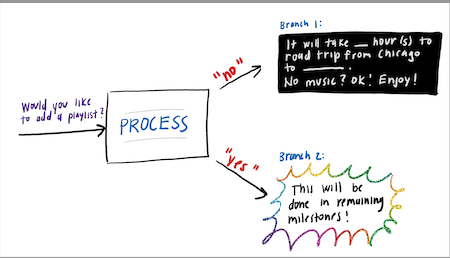 Would you like
to add a playlist?
PROCESS
"no"
Branch 1:
It will take __ hour(s) to
road trip from Chicago
to ______.
No music? OK! Enjoy!
"yes"
Branch 2:
This will be
done in remaining
milestones!